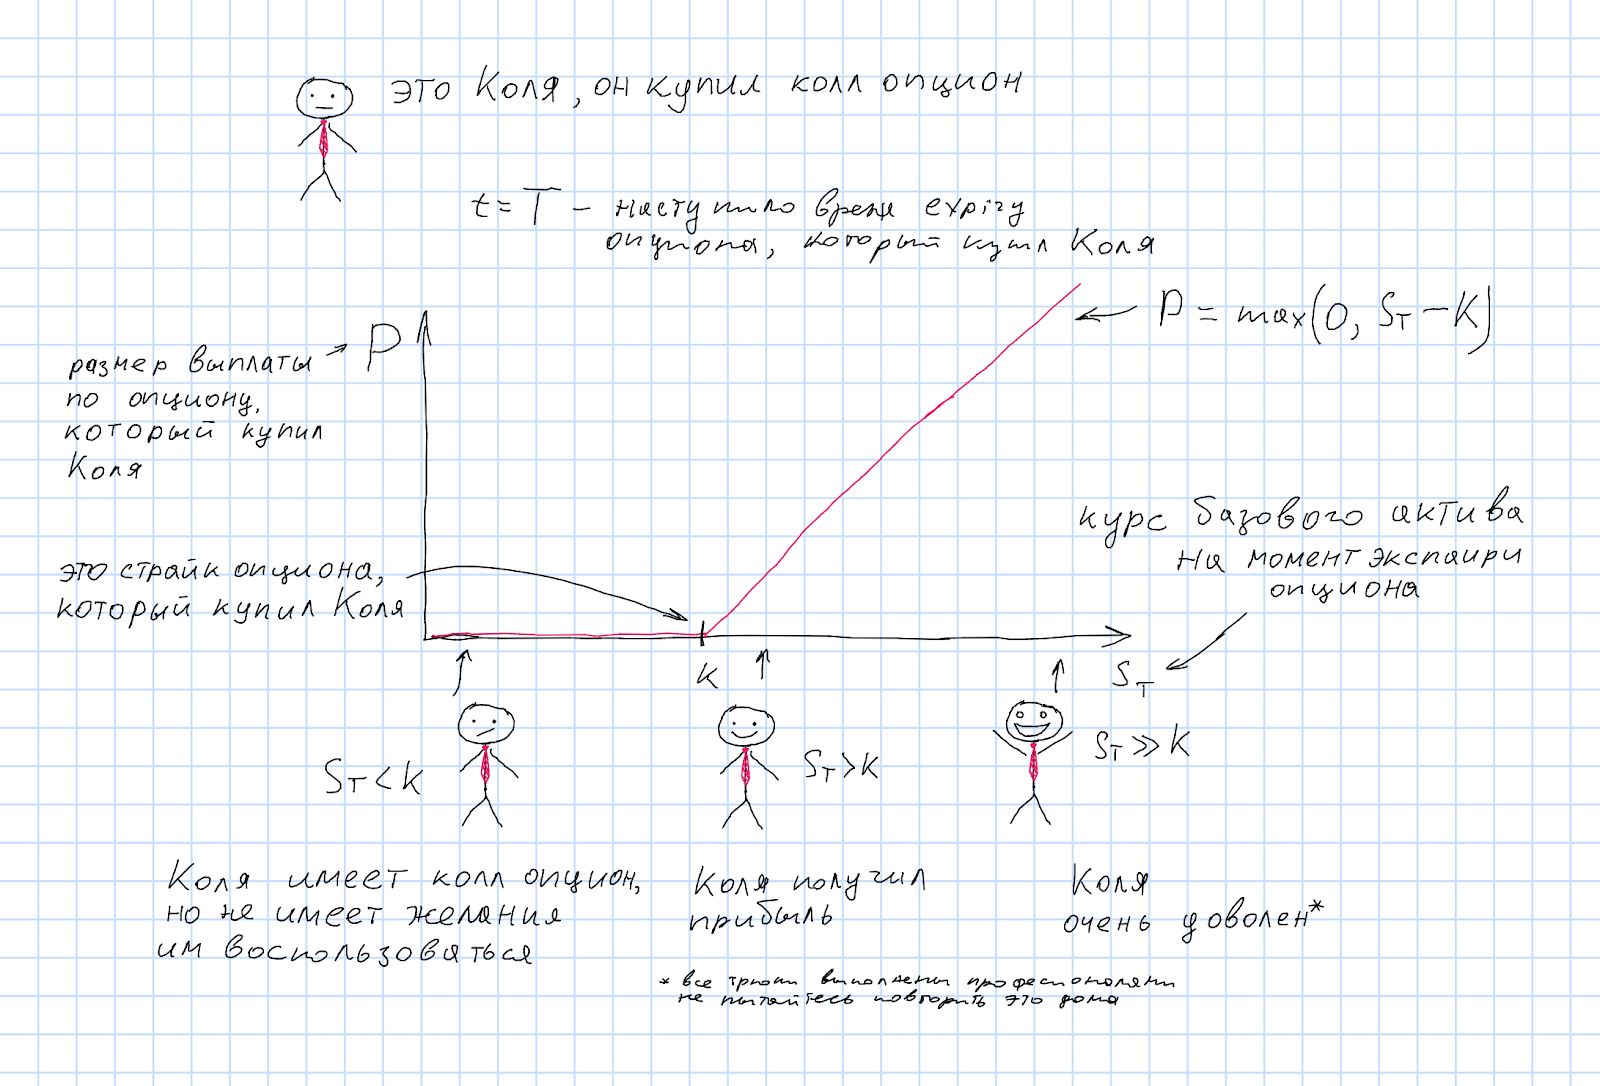 это Коля, он купил колл опцион
t = T – наступило время expiry
опциона, который купил Коля
P = max(0, S_T – K)
размер выплаты → P
по опциону,
который купил
Коля
курс базового актива
на момент экспаири
опциона
это страйк опциона,
который купил Коля
K
S_T
S_T < K
S_T > K
S_T >> K
Коля имеет колл опцион,
но не имеет желания
им воспользоваться
Коля получил
прибыль
Коля
очень доволен*
* все трюки выполнены професионалами
не пытайтесь повторить это дома